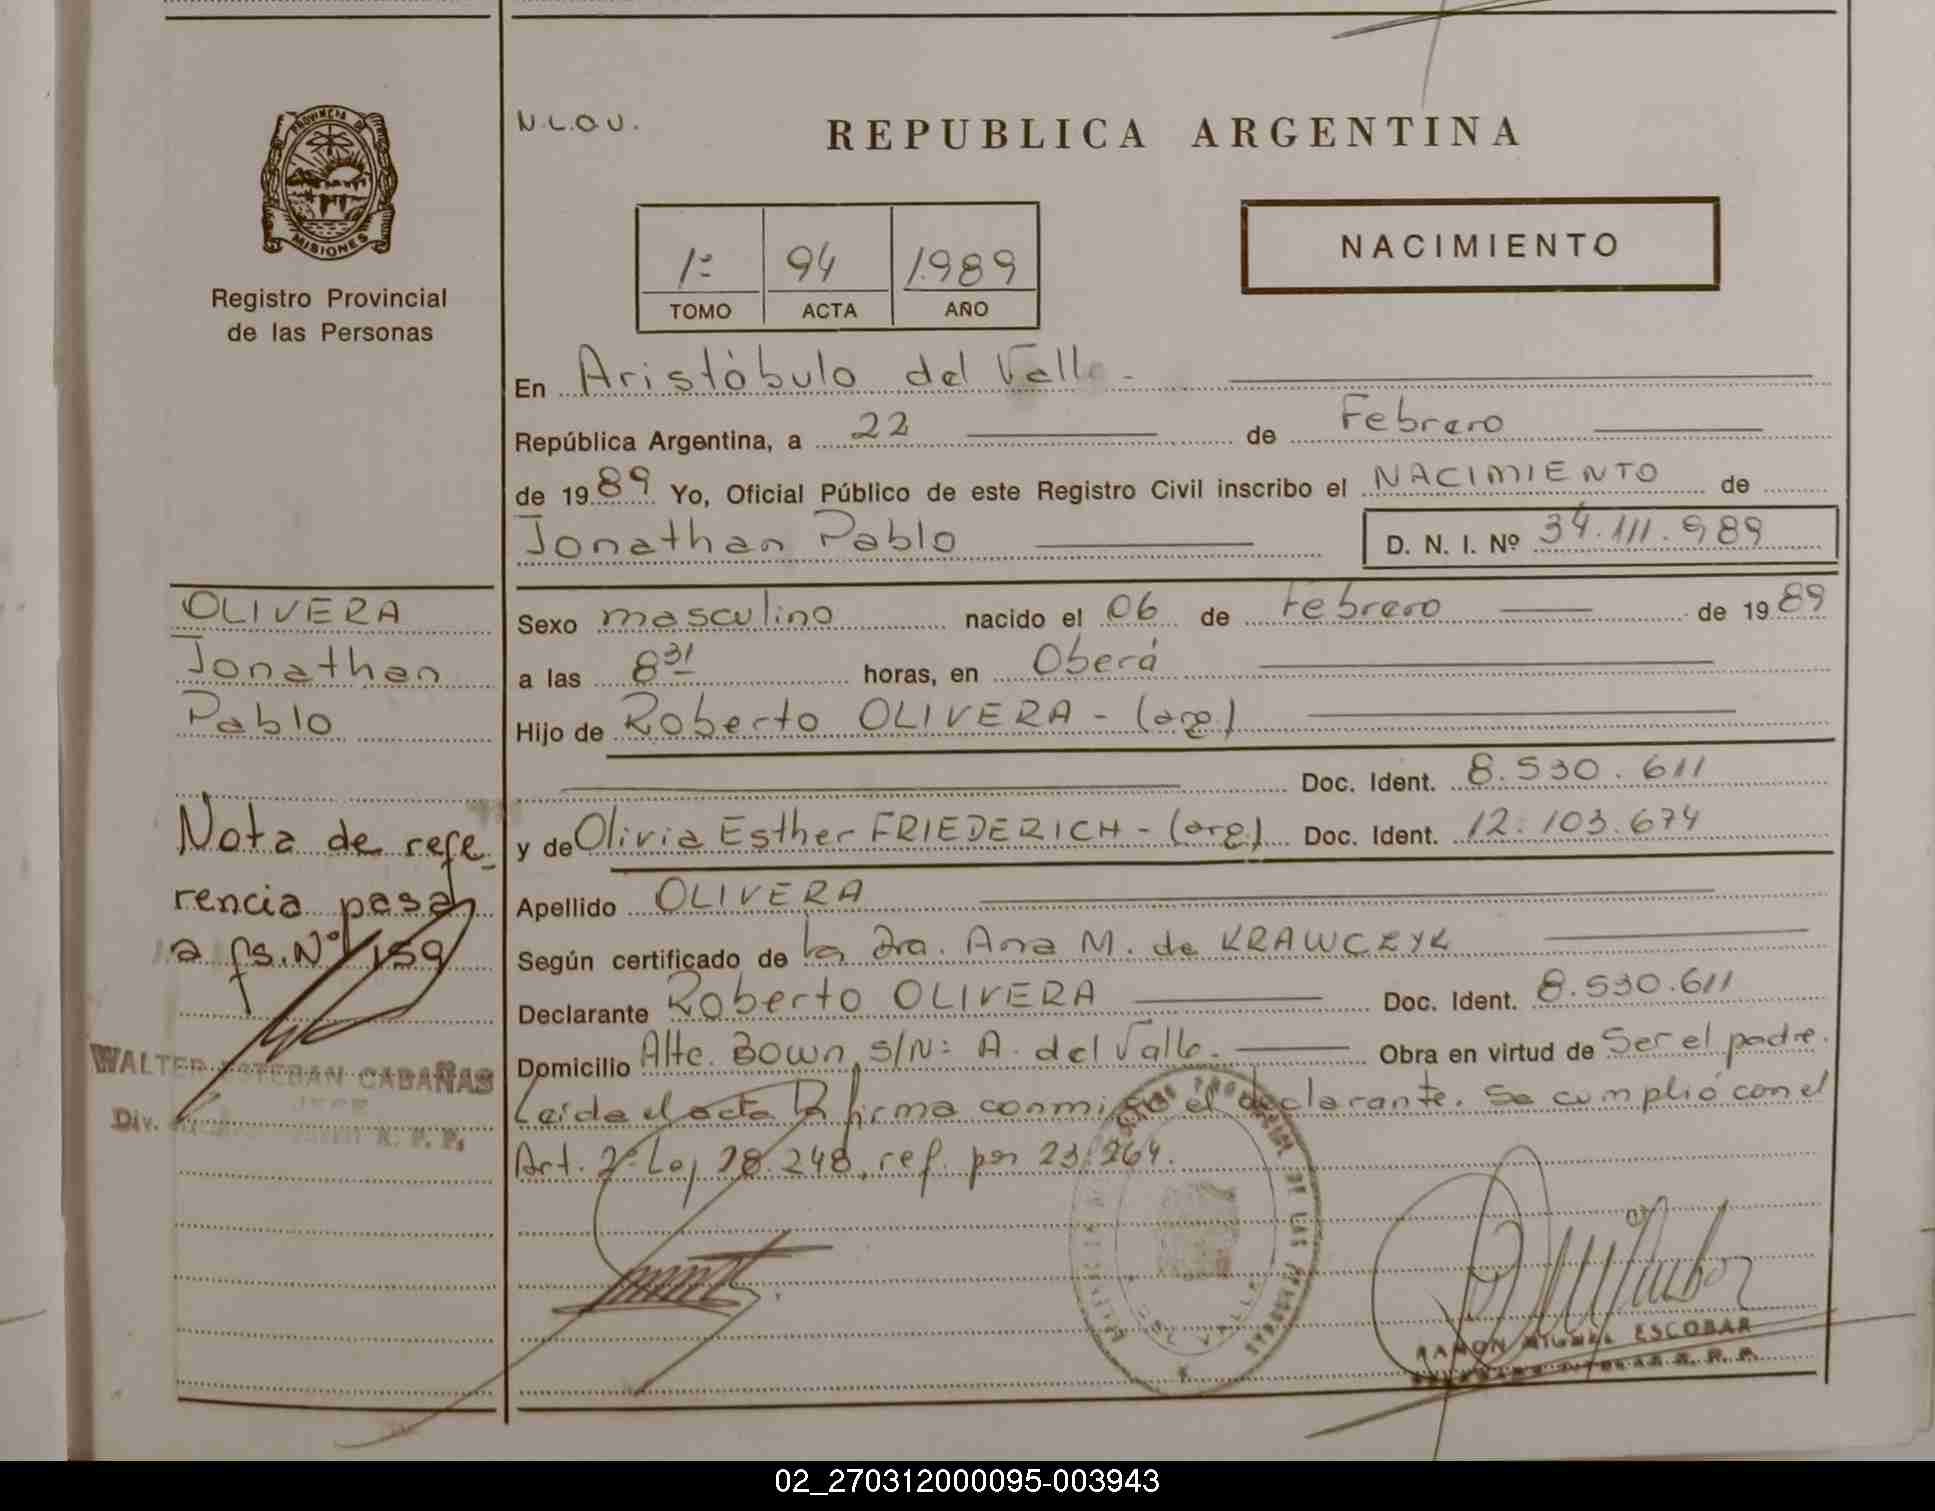 PROVINCIA DE
MISIONES
Registro Provincial
de las Personas
N.L.O.U.
REPUBLICA ARGENTINA
1º 94 1989
TOMO ACTA AÑO
NACIMIENTO
En Aristóbulo del Valle -
República Argentina, a 22 de Febrero
de 1989 Yo, Oficial Público de este Registro Civil inscribo el NACIMIENTO de
Jonathan Pablo D. N. I. Nº 34.111.989
OLIVERA
Jonathan
Pablo
Sexo masculino nacido el 06 de Febrero de 1989
a las 8 31 horas, en Oberá
Hijo de Roberto OLIVERA - (arg.)
Doc. Ident. 8.530.611
y de Olivia Esther FRIEDERICH - (arg.) Doc. Ident. 12.103.674
Apellido OLIVERA
Según certificado de la Dra. Ana M. de KRAWCZYK
Declarante Roberto OLIVERA Doc. Ident. 8.530.611
Domicilio Alte. Bown s/N: A. del Valle. Obra en virtud de Ser el padre.
Leída el acta la firma conmigo el declarante. Se cumplió con el
Art. 2º Ley 18.248, ref. por 23.264.
Nota de refe-
rencia pasa
a fs. Nº 159
WALTER ESTEBAN CABAÑAS
JEFE
Div.
R. P. P.
DE LAS PERSONAS
DEL VALLE
RAMON MIGUEL ESCOBAR
R. P. P.
02_270312000095-003943